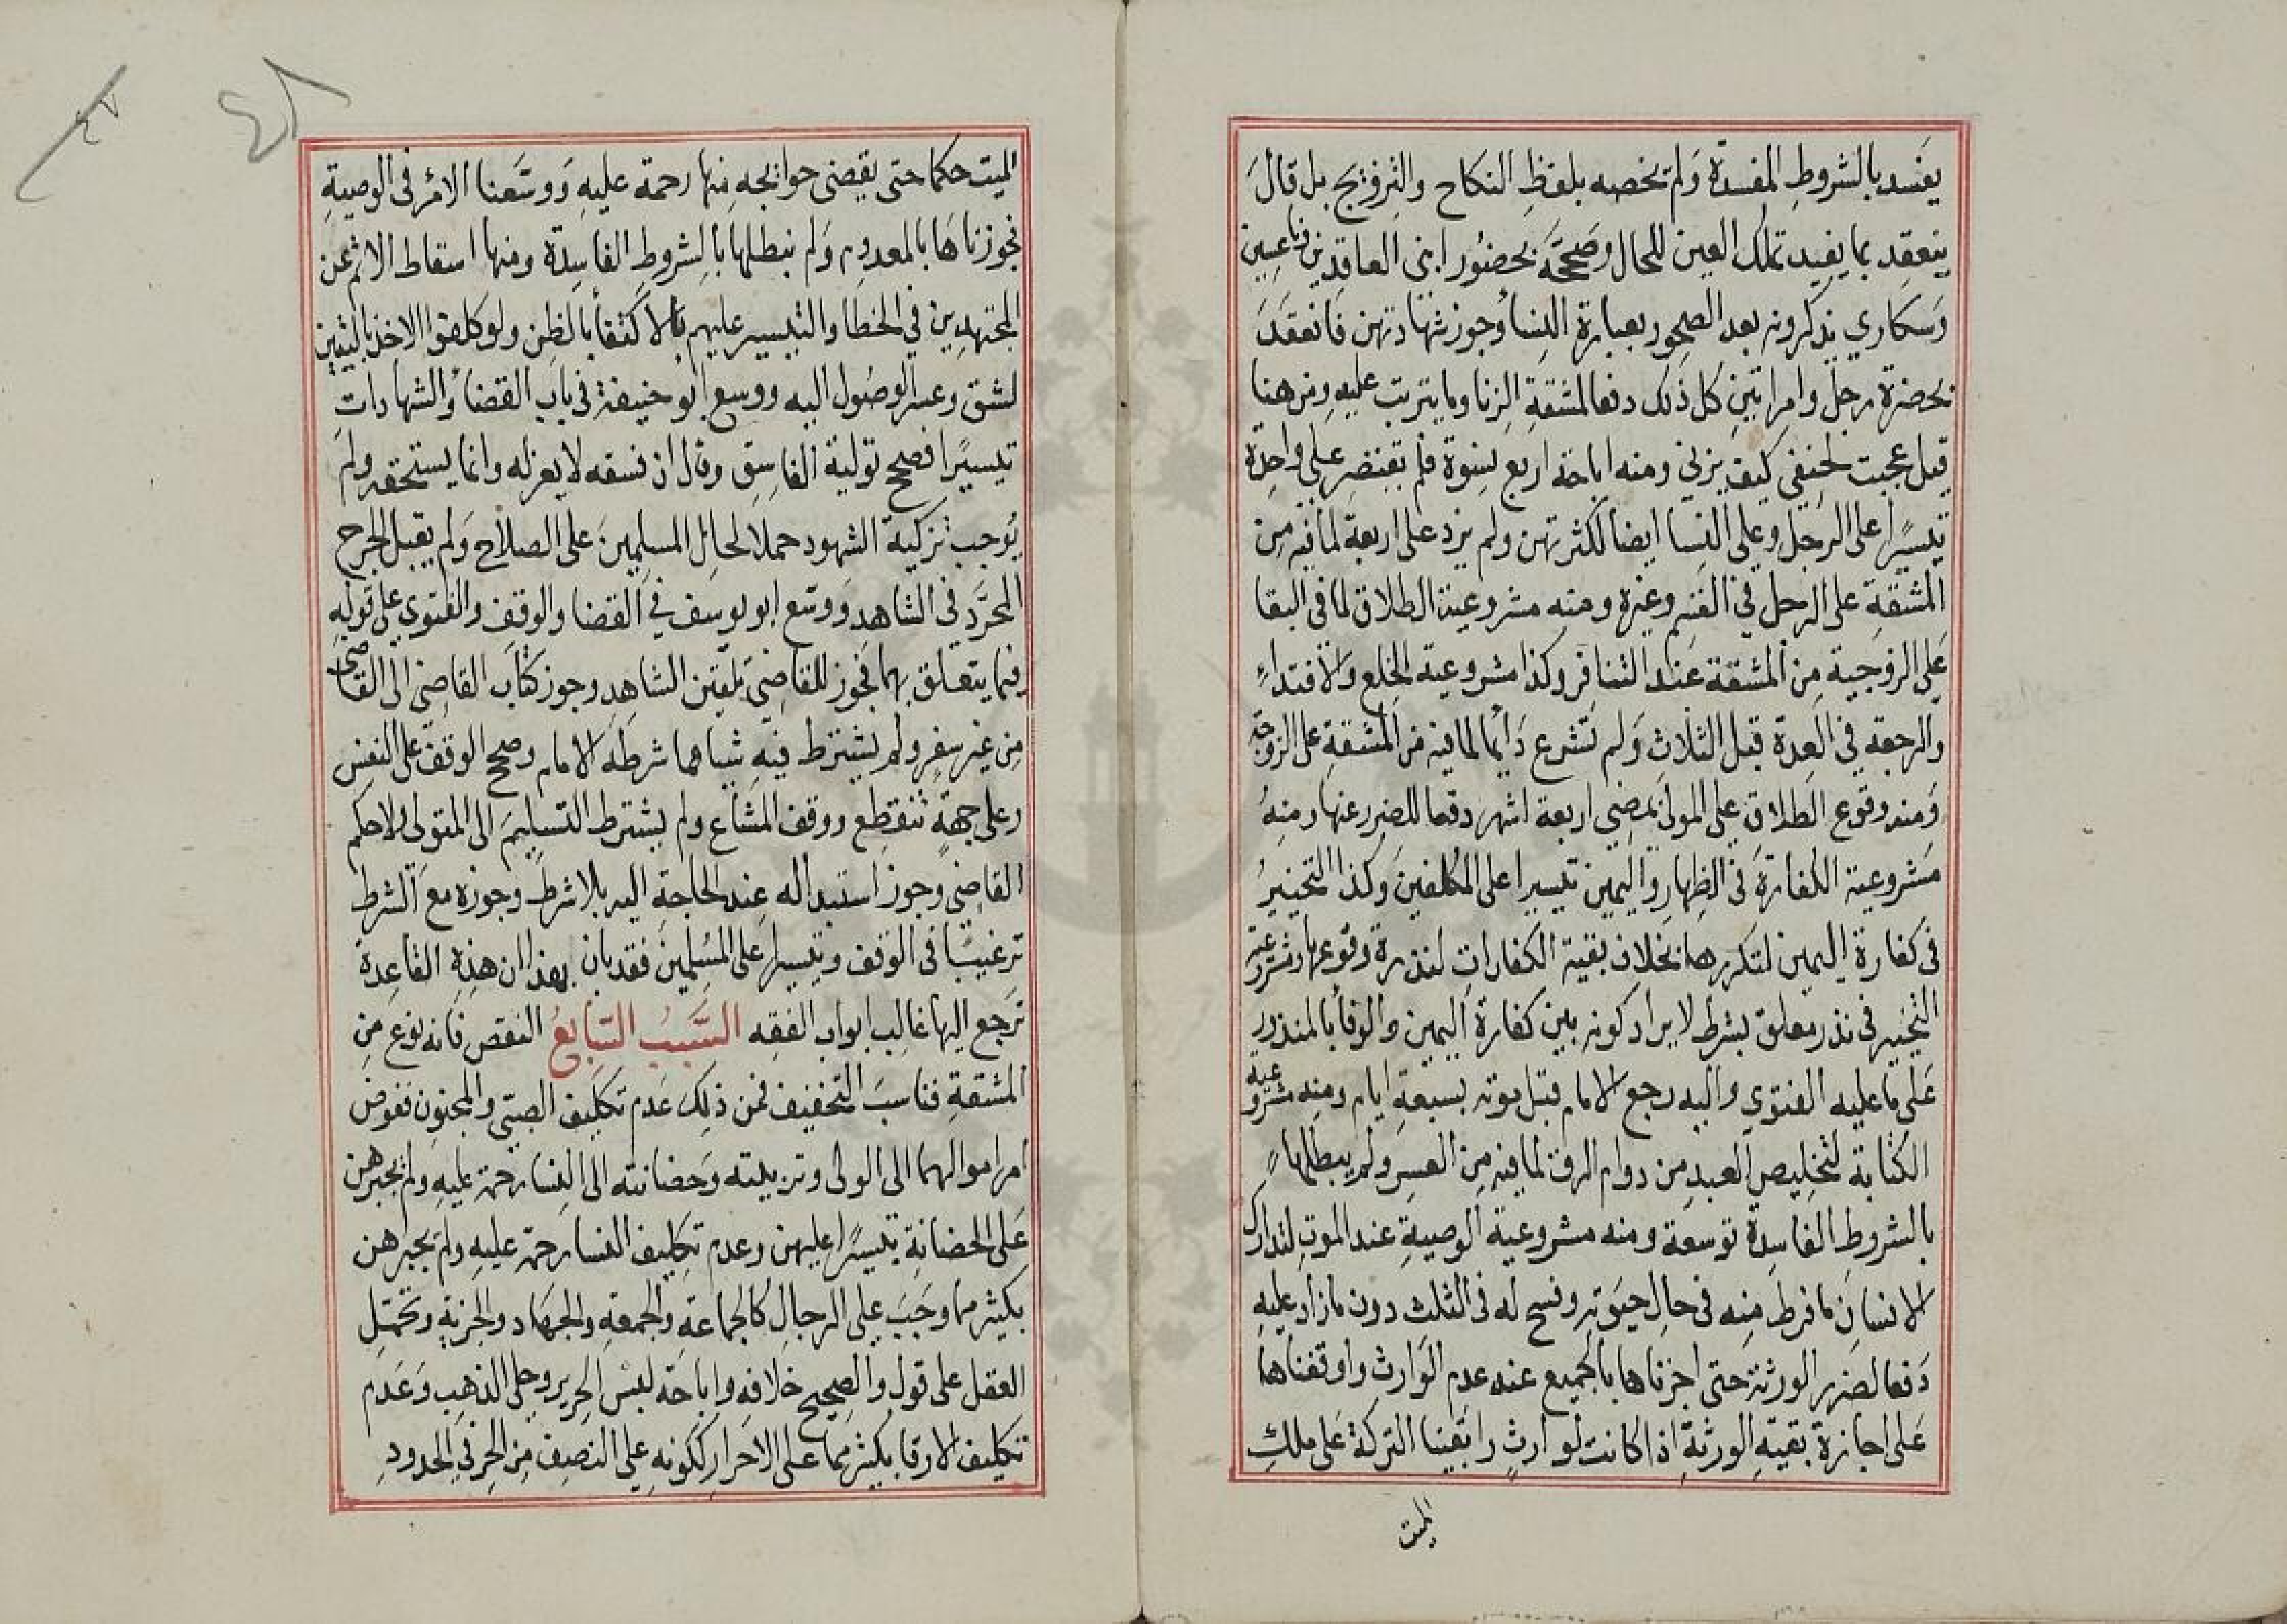 يفسد بالشروط المفسدة ولم نخصه بلفظ النكاح والتزويج بل قال
ينعقد بما يفيد تملك العين للحال وصححه بحضور ابني العاقدين وناعسين
وسكاري يذكرونه بعد الصحو وبعبارة النساء وجوز شهادتهن فانعقد
بحضرة رجل وامراتين كل ذلك دفعا لمشقة الزنا وما يترتب عليه ومن هنا
قيل عجبت لحنفي كيف يزني ومنه اباحة اربع نسوة فلم يقتصر على واحدة
تيسيرا على الرجل وعلى النسا ايضا لكثرتهن ولم يزد على اربعة لما فيه من
المشقة على الرجل في القسم وغيره ومنه مشروعية الطلاق لما في البقا
على الزوجية من المشقة عند التنافر وكذا مشروعية الخلع والافتداء
والرجعة في العدة قبل الثلاث ولم تشرع دائما لما فيه من المشقة على الزوجة
ومنه وقوع الطلاق على المولى بمضي اربعة اشهر دفعا للضرر عنها ومنه
مشروعية الكفارة في الظهار واليمين تيسيرا على المكلفين وكذا التخيير
في كفارة اليمين لتكررها بخلاف بقية الكفارات لندرة وقوعها ومشروعية
التخيير في نذر معلق بشرط لا يراد كونه بين كفارة اليمين والوفا بالمنذور
على ما عليه الفتوي واليه رجع الامام قبل موته بسبعة ايام ومنه مشروعية
الكتابة لتخليص العبد من دوام الرق لما فيه من العسر ولم يبطلها
بالشروط الفاسدة توسعة ومنه مشروعية الوصية عند الموت لتدارك
الانسان ما فرط منه في حال حيوته وفسح له في الثلث دون ما زاد عليه
دفعا لضرر الورثة حتى اجزناها بالجميع عند عدم الوارث واوقفناها
على اجازة بقية الورثة اذا كانت لوارث وابقينا التركة على ملك
الميت
الميت حكما حتى يقضي حوايجه منها رحمة عليه ووسعنا الامر في الوصية
فجوزناها بالمعدوم ولم نبطلها بالشروط الفاسدة ومنها اسقاط الاثم عن
المجتهدين في الخطا والتيسير عليهم بالاكتفا بالظن ولو كلفوا الاخذ باليقين
لشق وعسر الوصول اليه ووسع ابو حنيفة في باب القضا والشهادات
تيسيرا فصحح تولية الفاسق وقال ان فسقه لا يعزله وانما يستحقه ولم
يوجب تزكية الشهود حملا لحال المسلمين على الصلاح ولم يقبل الجرح
المجرد في الشاهد ووسع ابو يوسف في القضا والوقف والفتوي على قوله
فيما يتعلق بهما فجوز للقاضي تلقين الشاهد وجوز كتاب القاضي الى القاضي
من غير سفر ولم يشترط فيه شيا مما شرطه الامام وصحح الوقف على النفس
وعلى جهة تنقطع ووقف المشاع ولم يشترط التسليم الى المتولي ولا حكم
القاضي وجوز استبداله عند الحاجة اليه بلا شرط وجوزه مع الشرط
ترغيبا في الوقف وتيسيرا على المسلمين فقد بان بهذا ان هذه القاعدة
ترجع اليها غالب ابواب الفقه السبب السابع النقص فانه نوع من
المشقة فناسب التخفيف فمن ذلك عدم تكليف الصبي والمجنون ففوض
امر اموالهما الى الولي وتربيته وحضانته الى النسا رحمة عليه ولم يجبرهن
على الحضانة تيسيرا عليهن وعدم تكليف النسا رحمة عليه ولم يجبرهن
بكثير مما وجب على الرجال كالجماعة والجمعة والجهاد والجزية وتحمل
العقل على قول والصحيح خلافه واباحة لبس الحرير وحلي الذهب وعدم
تكليف الارقا بكثير مما على الاحرار لكونه على النصف من الحر في الحدود